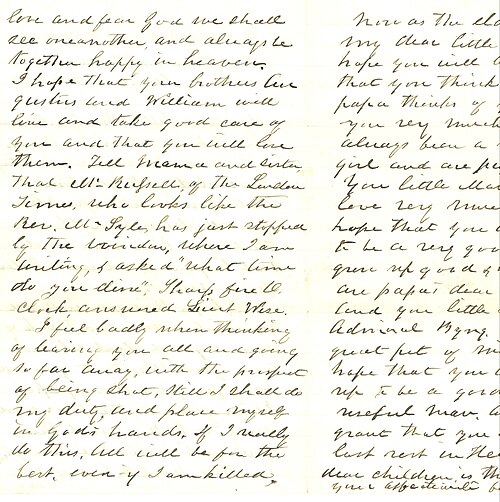 love and fear God we shall
see oneanother, and always be
together happy in heaven.
I hope that your brothers Au
gustus and William will
live and take good care of
you and that you will love
them. Tell Mama and Sister
that Mr Russell, of the London
Times, who looks like the
Rev. Mr Syle, has just stopped
by the window, where I am
writing, & asked "what time
do you dine", Sharp five O
Clock, answered Lieut Wise.
I feel badly when thinking
of leaving you all and going
so far away, with the prospect
of being shot, still I shall do
my duty, and place myself
in God's hands. If I really
do this, All will be for the
best, even if I am killed,
Now as the
my dear little
hope you will
that you think
papa thinks of
you very much
always been a
girl and are
You little
love very
hope that you
to be a very
grow up good
are papa's dear
And you little
Admiral Byng.
great pet of
hope that you
up to be a good
useful man
grant that you
last rest in
dear children, is
your affectionate